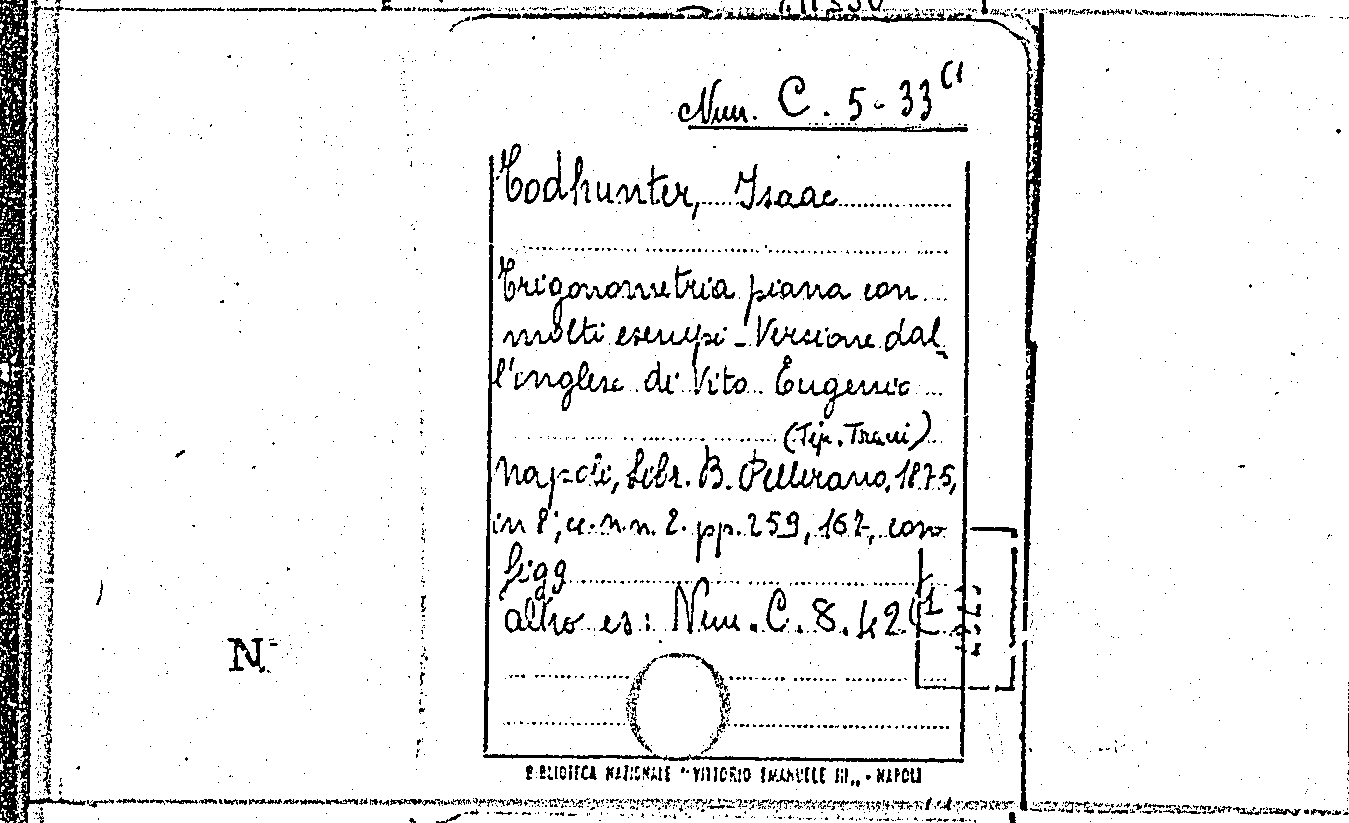 Num. C. 5-33 (1
Todhunter, Isaac
Trigonometria piana con
molti esempi - Versione dal
l'inglese di Vito Eugenio
(Tip. Trani)
Napoli, Libr. B. Pellerano, 1875,
in 8°; cc. n. n. 2. pp. 259, 167, con
figg
altro es: Num. C. 8. 42 (1
N.
BIBLIOTECA NAZIONALE "VITTORIO EMANUELE III„ - NAPOLI